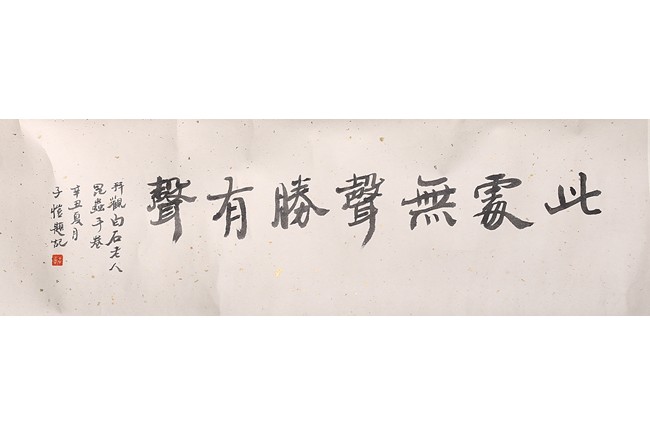 此處無聲勝有聲
拜觀白石老人
昆蟲手卷
辛丑夏月
子愷題記